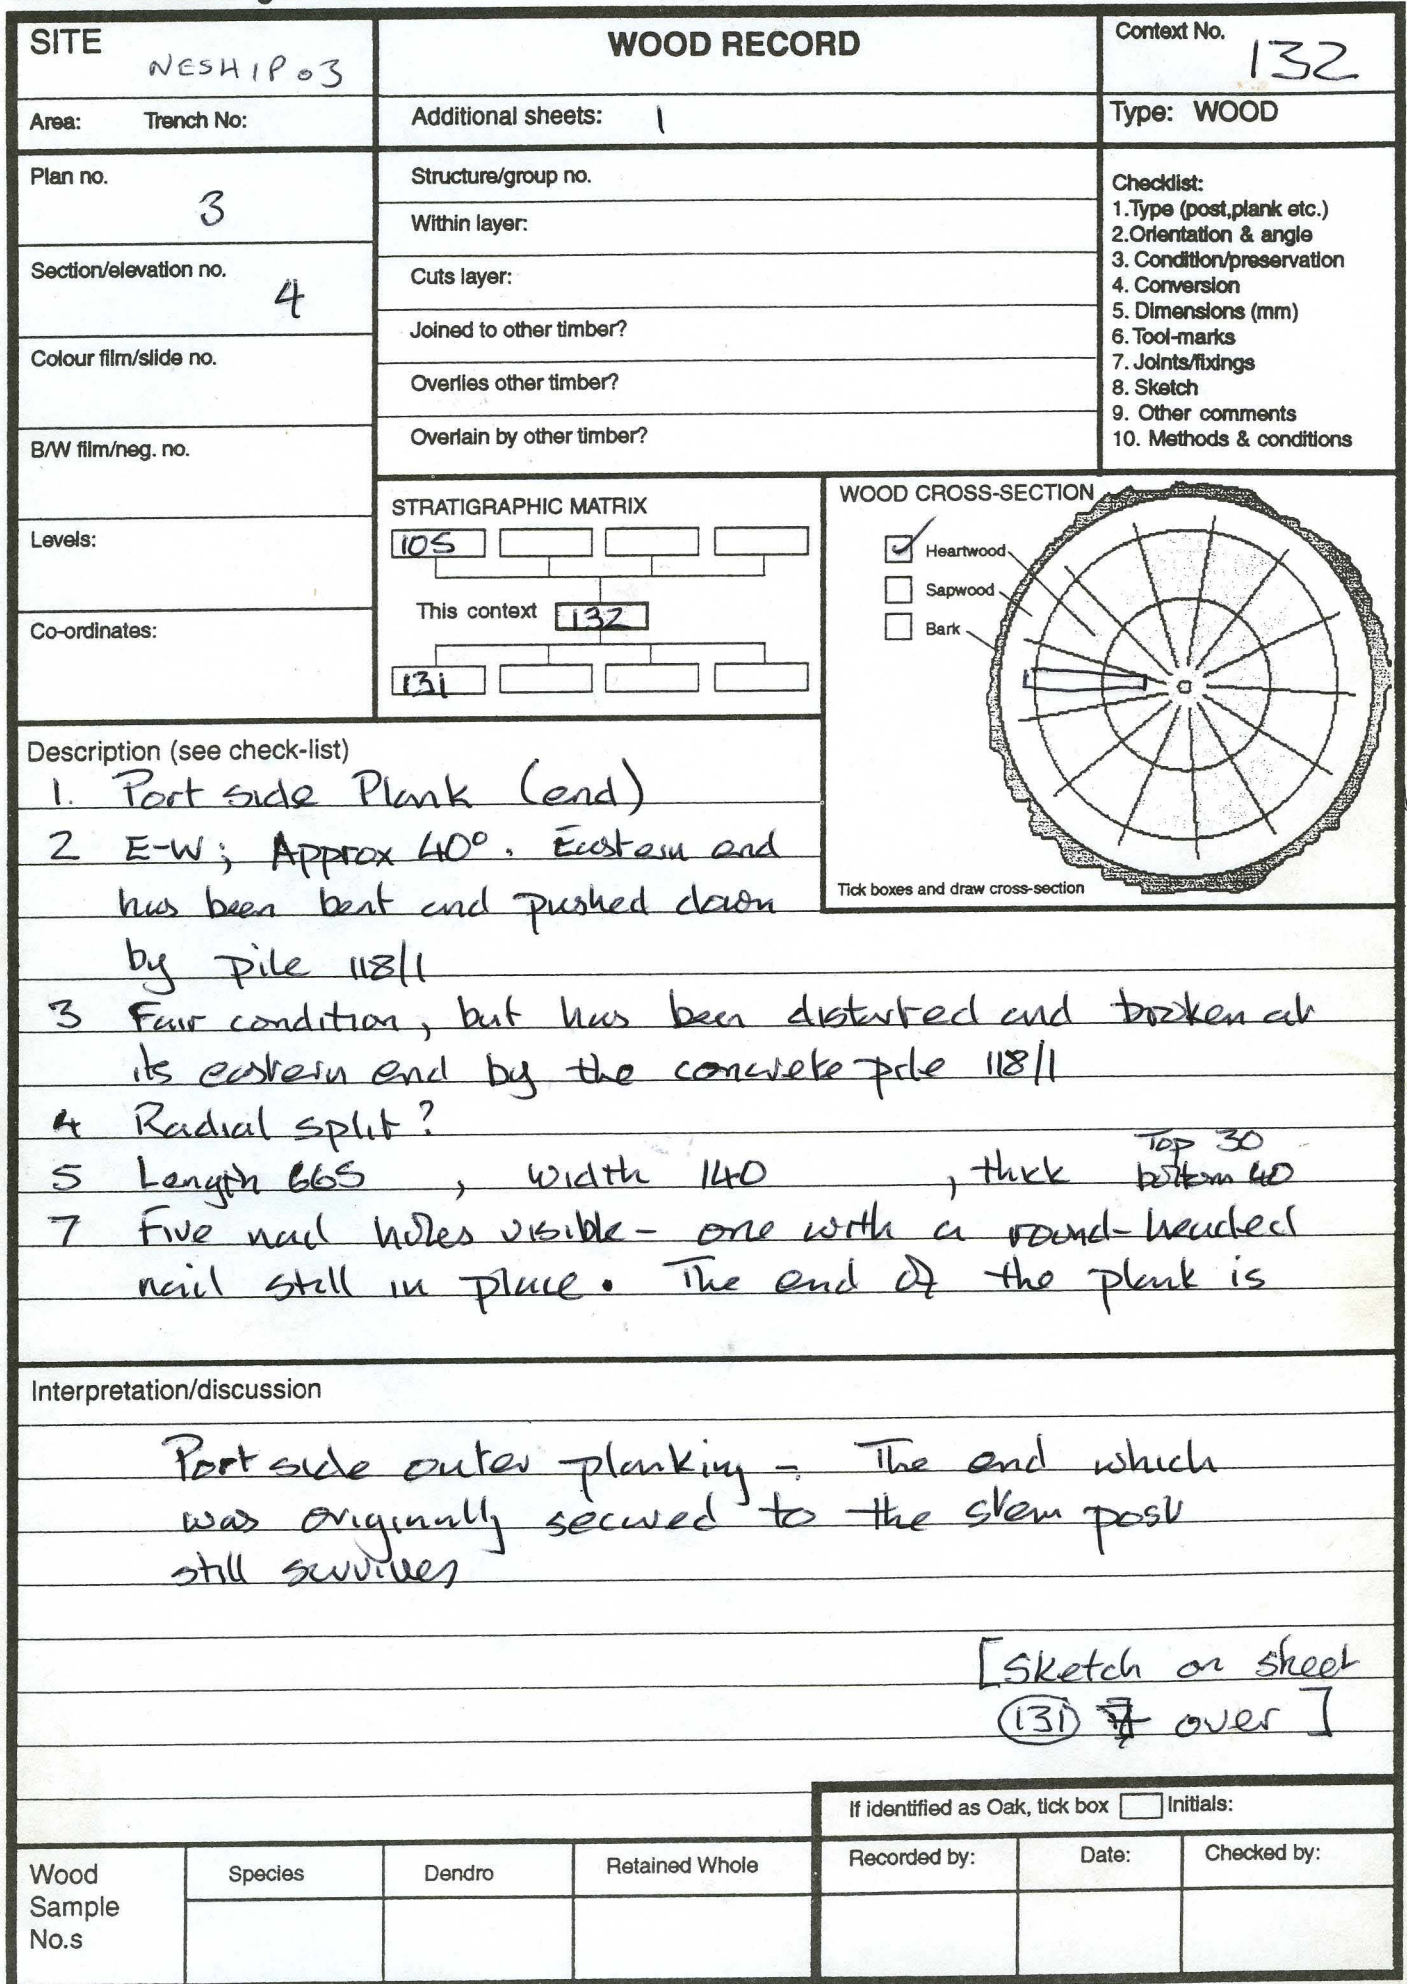 SITE
NESHIP03
WOOD RECORD
Context No.
132
Area: Trench No:
Additional sheets: 1
Type: WOOD
Plan no.
3
Section/elevation no.
4
Colour film/slide no.
B/W film/neg. no.
Levels:
Co-ordinates:
Structure/group no.
Within layer:
Cuts layer:
Joined to other timber?
Overlies other timber?
Overlain by other timber?
Checklist:
1.Type (post,plank etc.)
2.Orientation & angle
3. Condition/preservation
4. Conversion
5. Dimensions (mm)
6. Tool-marks
7. Joints/fixings
8. Sketch
9. Other comments
10. Methods & conditions
STRATIGRAPHIC MATRIX
105
This context 132
131
WOOD CROSS-SECTION
Heartwood
Sapwood
Bark
Tick boxes and draw cross-section
Description (see check-list)
1. Port side Plank (end)
2 E-W; Approx 40°. Eastern end
has been bent and pushed down
by pile 118/1
3 Fair condition, but has been distorted and broken at
its eastern end by the concrete pile 118/1
4 Radial split?
Top 30
5 Length 665 , width 140 , thick bottom 40
7 Five nail holes visible - one with a round-headed
nail still in place. The end of the plank is
Interpretation/discussion
Port side outer planking - The end which
was originally secured to the stem post
still survives
[Sketch on sheet
131 over]
If identified as Oak, tick box Initials:
Wood
Sample
No.s
Species
Dendro
Retained Whole
Recorded by:
Date:
Checked by: